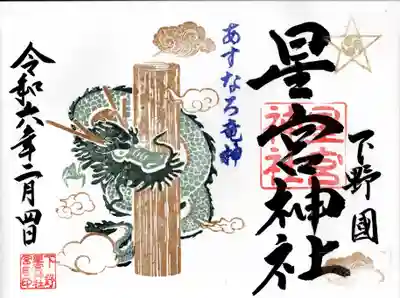 下野國
星宮神社
星宮
神社
あすなろ竜神
令和六年二月四日